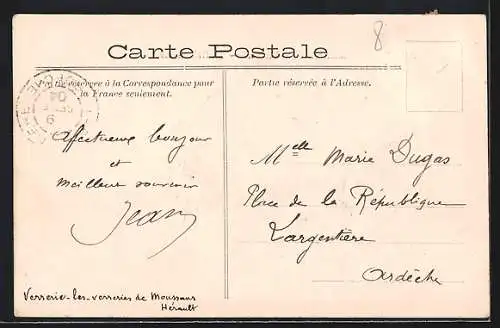 8
Carte Postale
Partie réservée à la Correspondance pour
la France seulement.
Partie réservée à l'Adresse.
04
9
Affectueux bonjour
et
meilleur souvenir
Jean
Melle Marie Dugas
Place de la République
Largentière
Ardèche
Verrerie-les-verreries de Moussans
Hérault